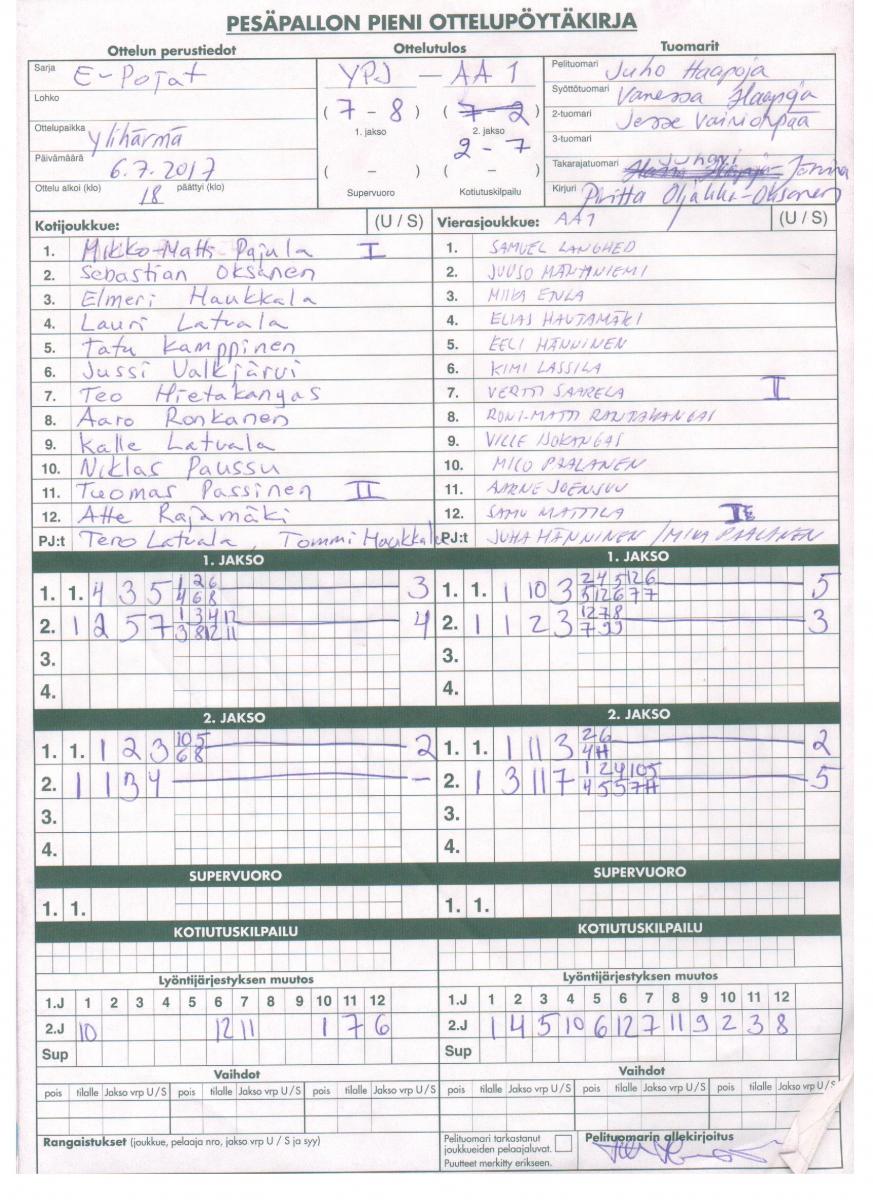 PESÄPALLON PIENI OTTELUPÖYTÄKIRJA
Ottelun perustiedot Ottelutulos Tuomarit
Sarja E-Pojat
Lohko
Ottelupaikka Ylihärmä
Päivämäärä 6.7.2017
Ottelu alkoi (klo) 18 päättyi (klo)
YPJ - AA1
(7 - 8) (7 - 2)
1. jakso 2. jakso
2 - 7
( - ) ( - )
Supervuoro Kotiutuskilpailu
Pelituomari Juho Haapoja
Syöttötuomari Vanessa Haapoja
2-tuomari Jesse Vainionpää
3-tuomari
Takarajatuomari Juhani
Kirjuri Piritta
Kotijoukkue: (U / S) Vierasjoukkue: AA1 (U / S)
1. Mikko-Matti Pajula I 1. SAMUEL LANGHED
2. Sebastian Oksanen 2. JUUSO MANTANIEMI
3. Elmeri Haukkala 3. MIIKA ETULA
4. Lauri Latvala 4. ELIAS HAUTAMÄKI
5. Tatu Kamppinen 5. EELI HÄNNINEN
6. Jussi Valkjärvi 6. KIMI LASSILA
7. Teo Hietakangas 7. VERTTI SAARELA I
8. Aaro Ronkanen 8. RONI-MATTI RANTAKANGAS
9. Kalle Latvala 9. VILLE ISOKANGAS
10. Niklas Paussu 10. MICO PAALANEN
11. Tuomas Passinen II 11. AARNE JOENSUU
12. Atte Rajamäki 12. SAMU MATTILA
PJ:t Tero Latvala, Tommi Haukkala PJ:t JUHA HÄNNINEN / MIKA PAALANEN
1. JAKSO 1. JAKSO
1. 1. 4 3 5 3 1. 1. 1 10 3 5
2. 1 2 5 7 4 2. 1 1 2 3 3
3. 3.
4. 4.
2. JAKSO 2. JAKSO
1. 1. 1 2 3 10 5 6 8 2 1. 1. 1 11 3 2
2. 1 1 3 4 - 2. 1 3 11 7 5
3. 3.
4. 4.
SUPERVUORO SUPERVUORO
1. 1. 1. 1.
KOTIUTUSKILPAILU KOTIUTUSKILPAILU
Lyöntijärjestyksen muutos Lyöntijärjestyksen muutos
1.J 1 2 3 4 5 6 7 8 9 10 11 12 1.J 1 2 3 4 5 6 7 8 9 10 11 12
2.J 10 12 11 1 7 6 2.J 1 4 5 10 6 12 7 11 9 2 3 8
Sup Sup
Vaihdot Vaihdot
pois tilalle Jakso vrp U/S pois tilalle Jakso vrp U/S pois tilalle Jakso vrp U/S pois tilalle Jakso vrp U/S pois tilalle Jakso vrp U/S pois tilalle Jakso vrp U/S
Rangaistukset (joukkue, pelaaja nro, jakso vrp U / S ja syy)
Pelituomari tarkastanut
joukkueiden pelaajaluvat.
Puutteet merkitty erikseen.
Pelituomarin allekirjoitus